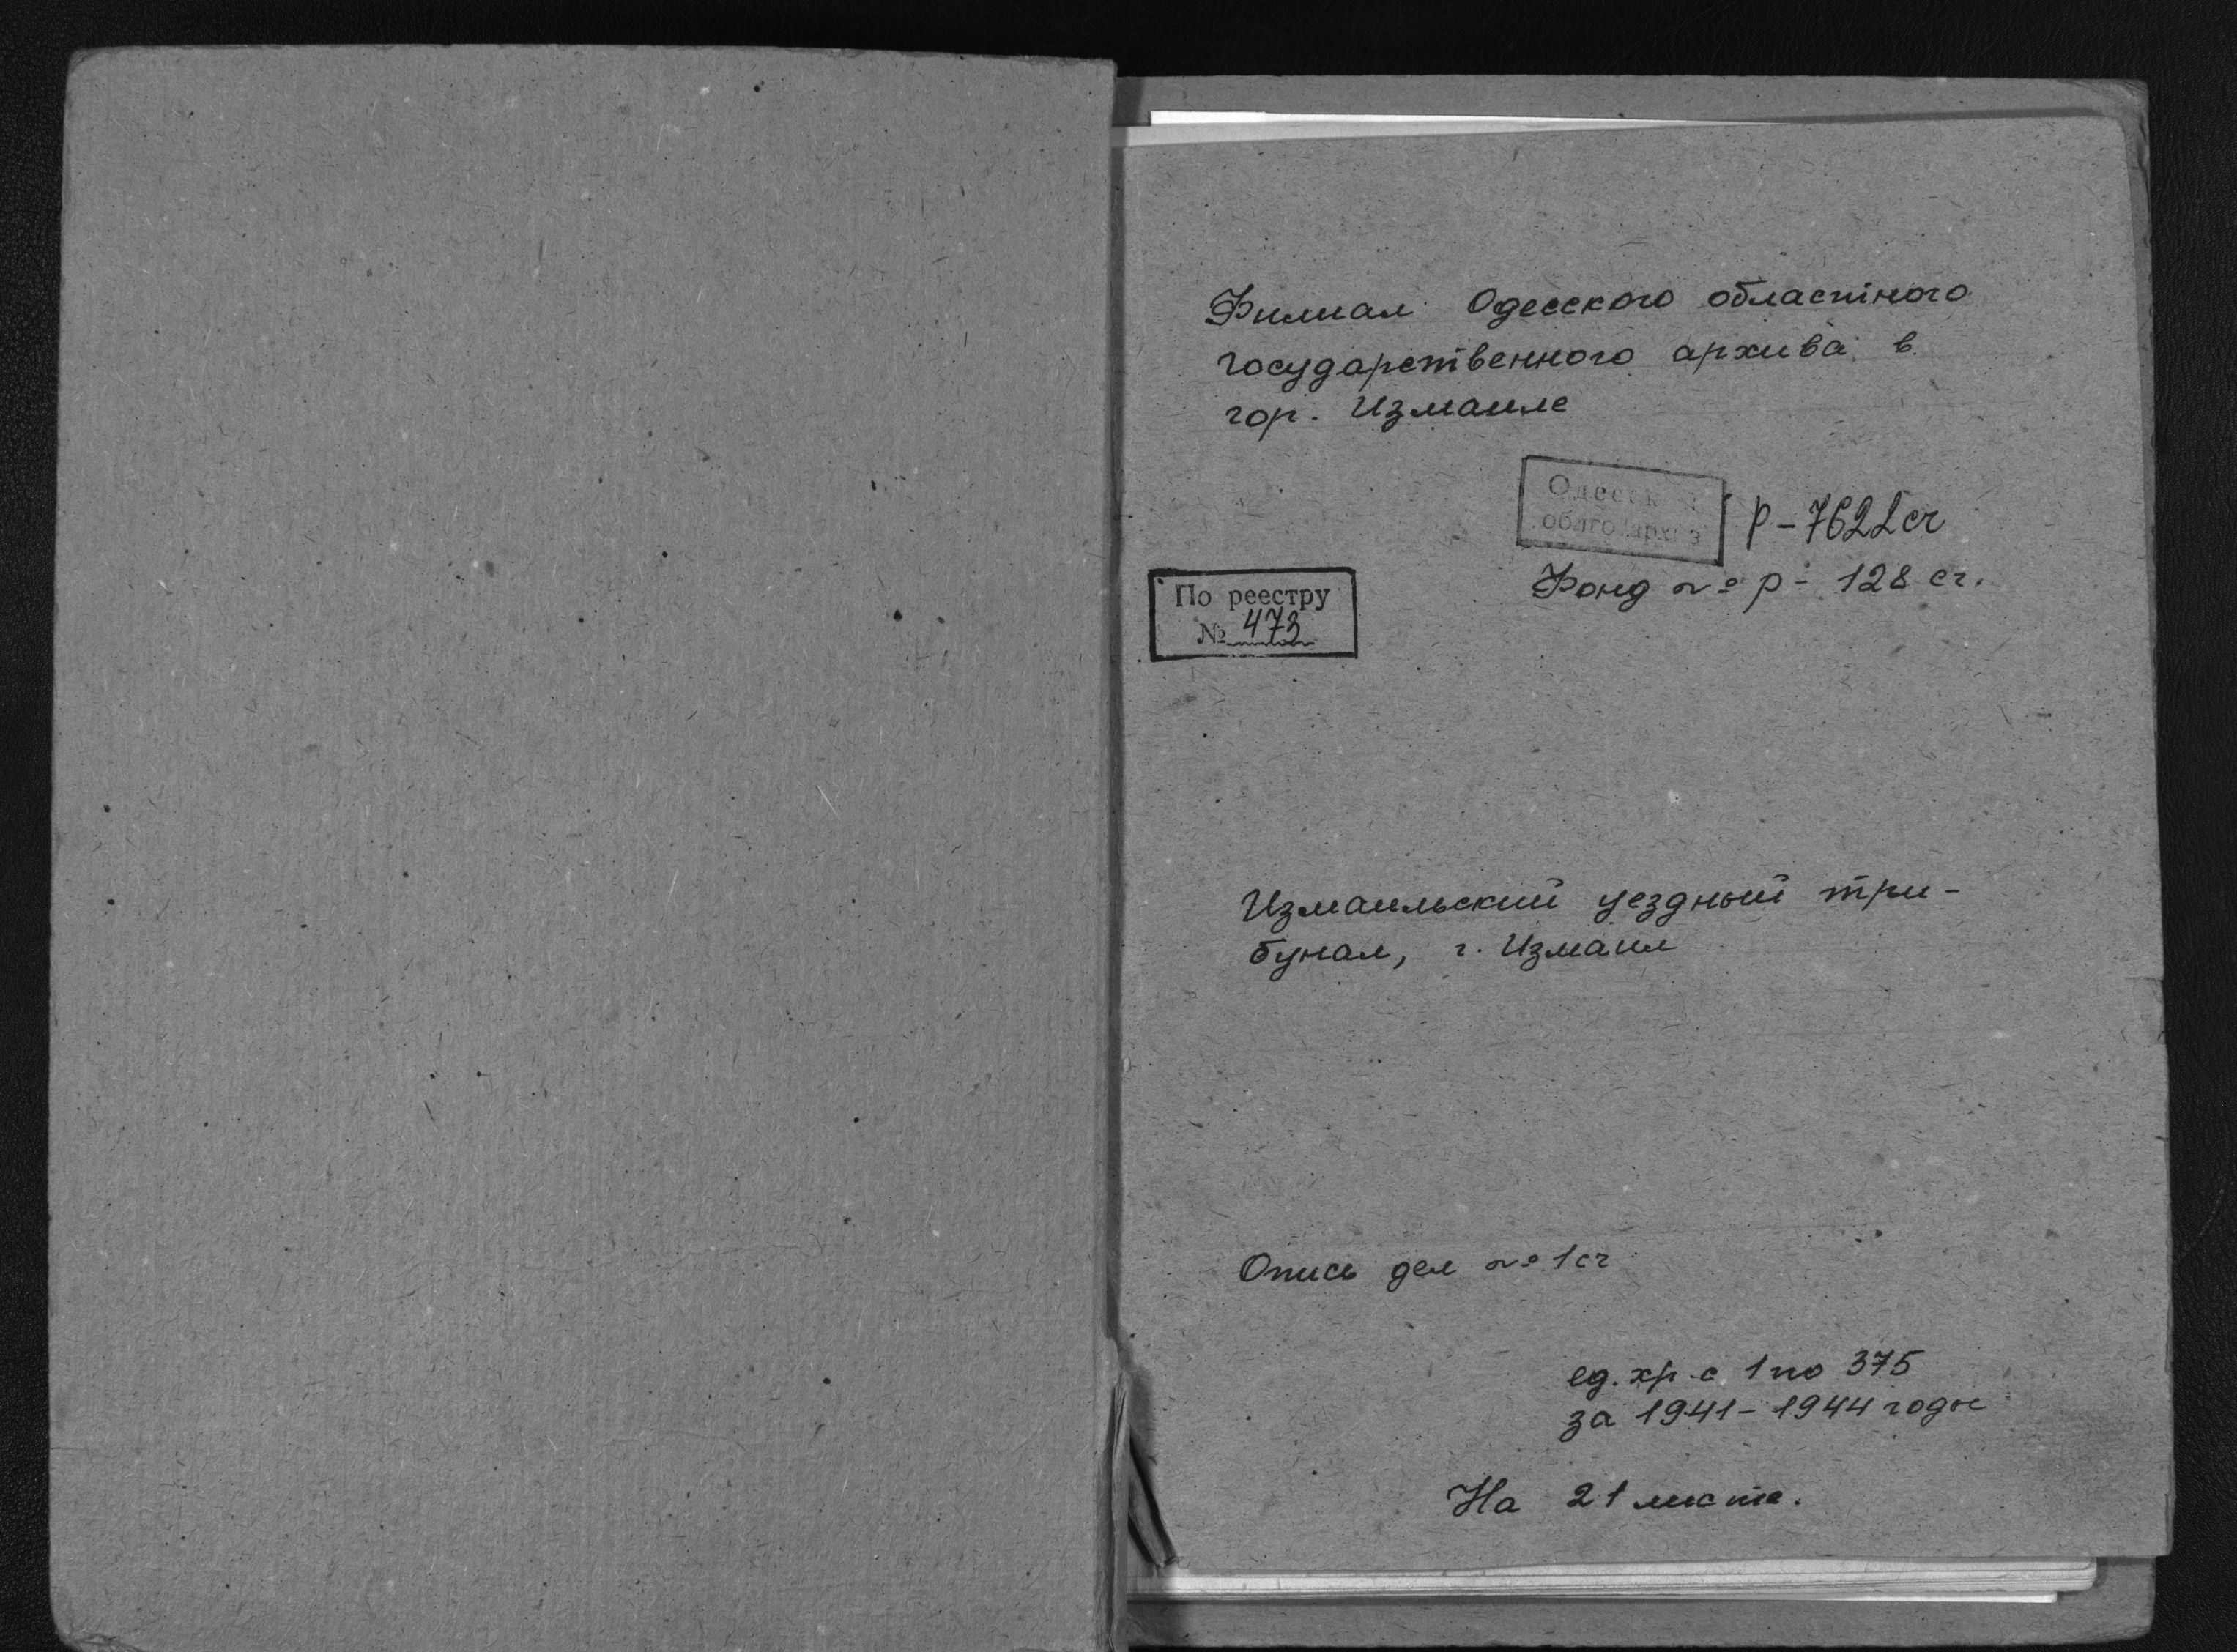 Филиал Одесского областного
государственного архива в
гор. Измаиле
Р-7622сч
Фонд № р- 128 сч.
По реестру
№ 473
Измаильский уездный три-
бунал, г. Измаил
Опись дел № 1сч
ед. хр. с 1 по 375
за 1941-1944 годы
На 21 листе.